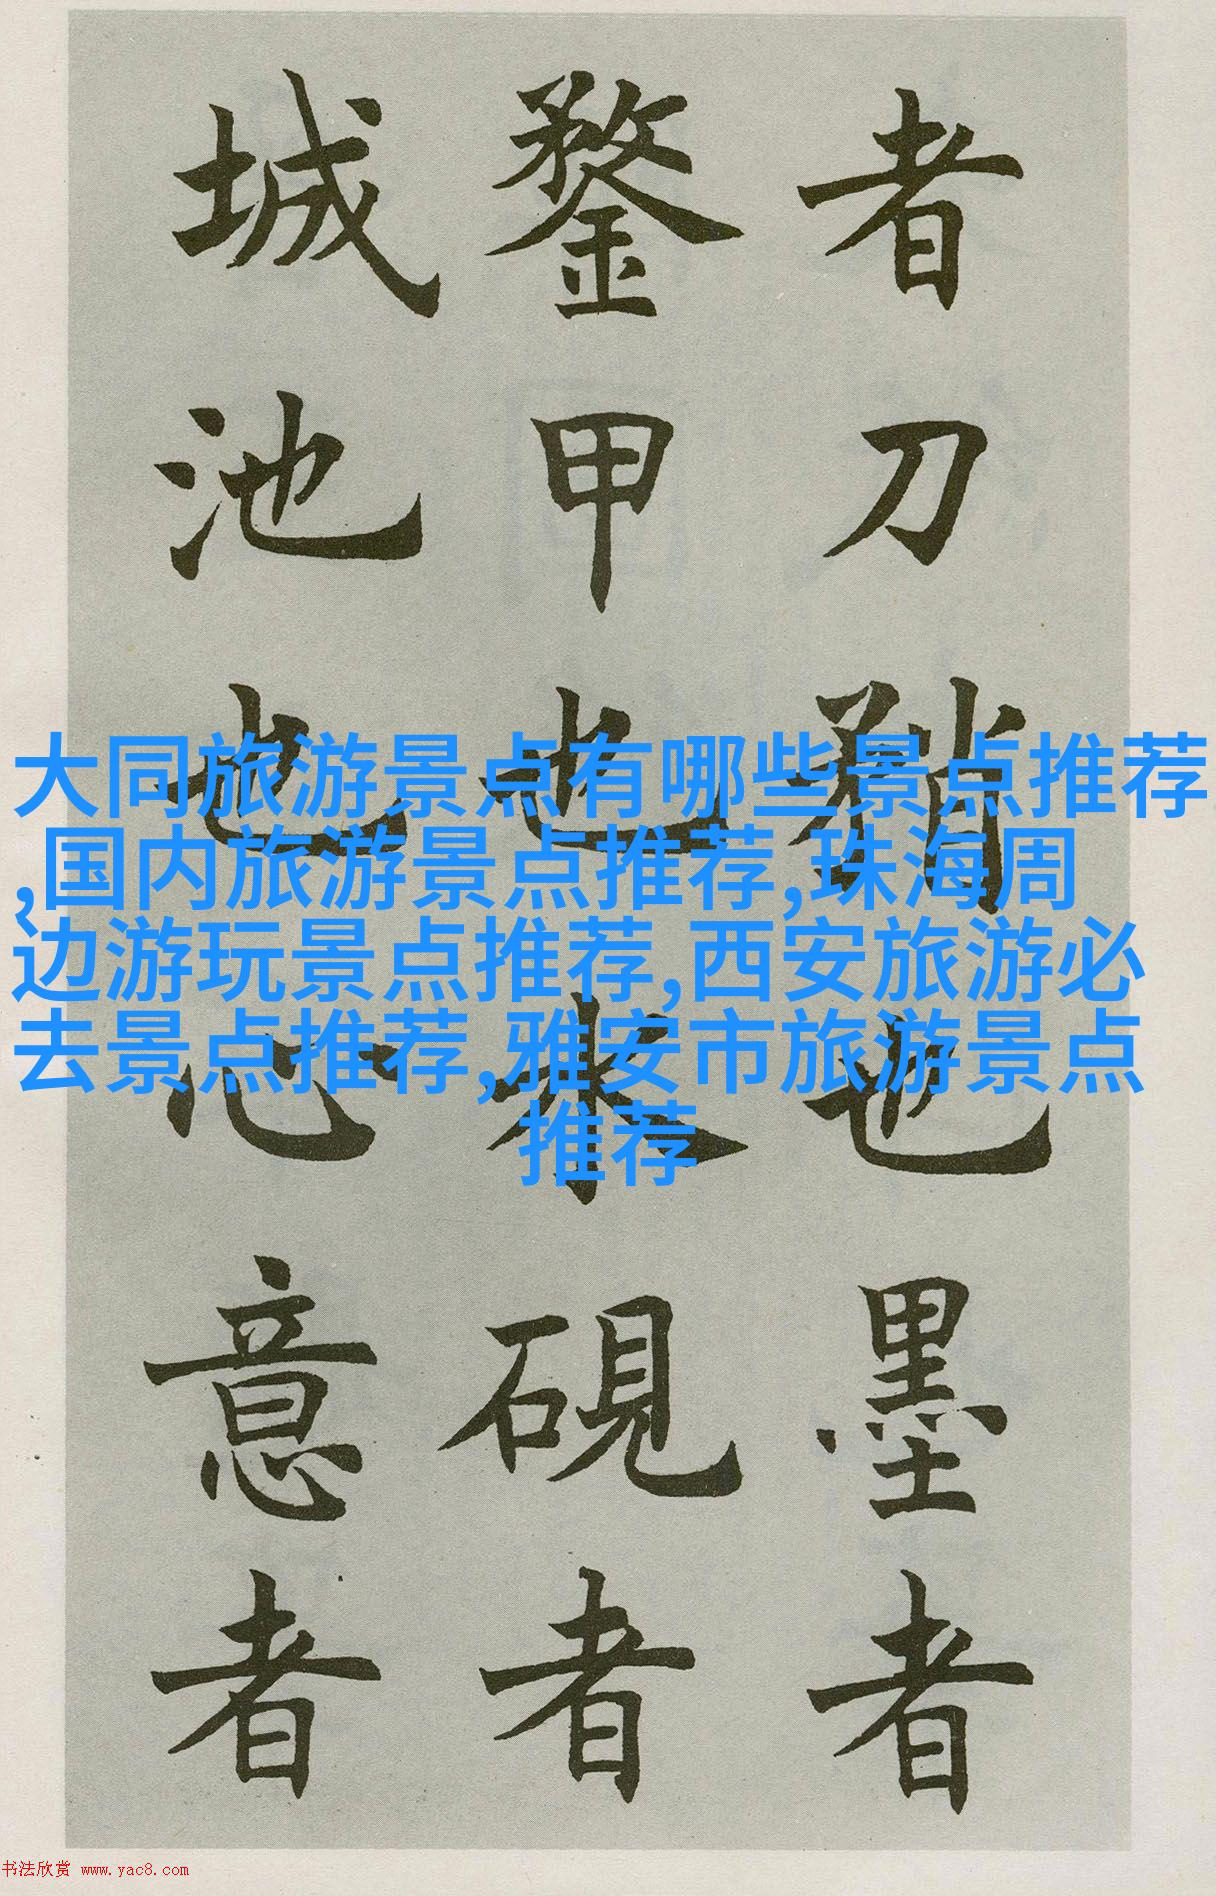 者刀矟也墨者
鍪甲也水硯者
城池也心意者
大同旅游景点有哪些景点推荐
,国内旅游景点推荐,珠海周
边游玩景点推荐,西安旅游必
去景点推荐,雅安市旅游景点
推荐
书法欣赏 www.yac8.com